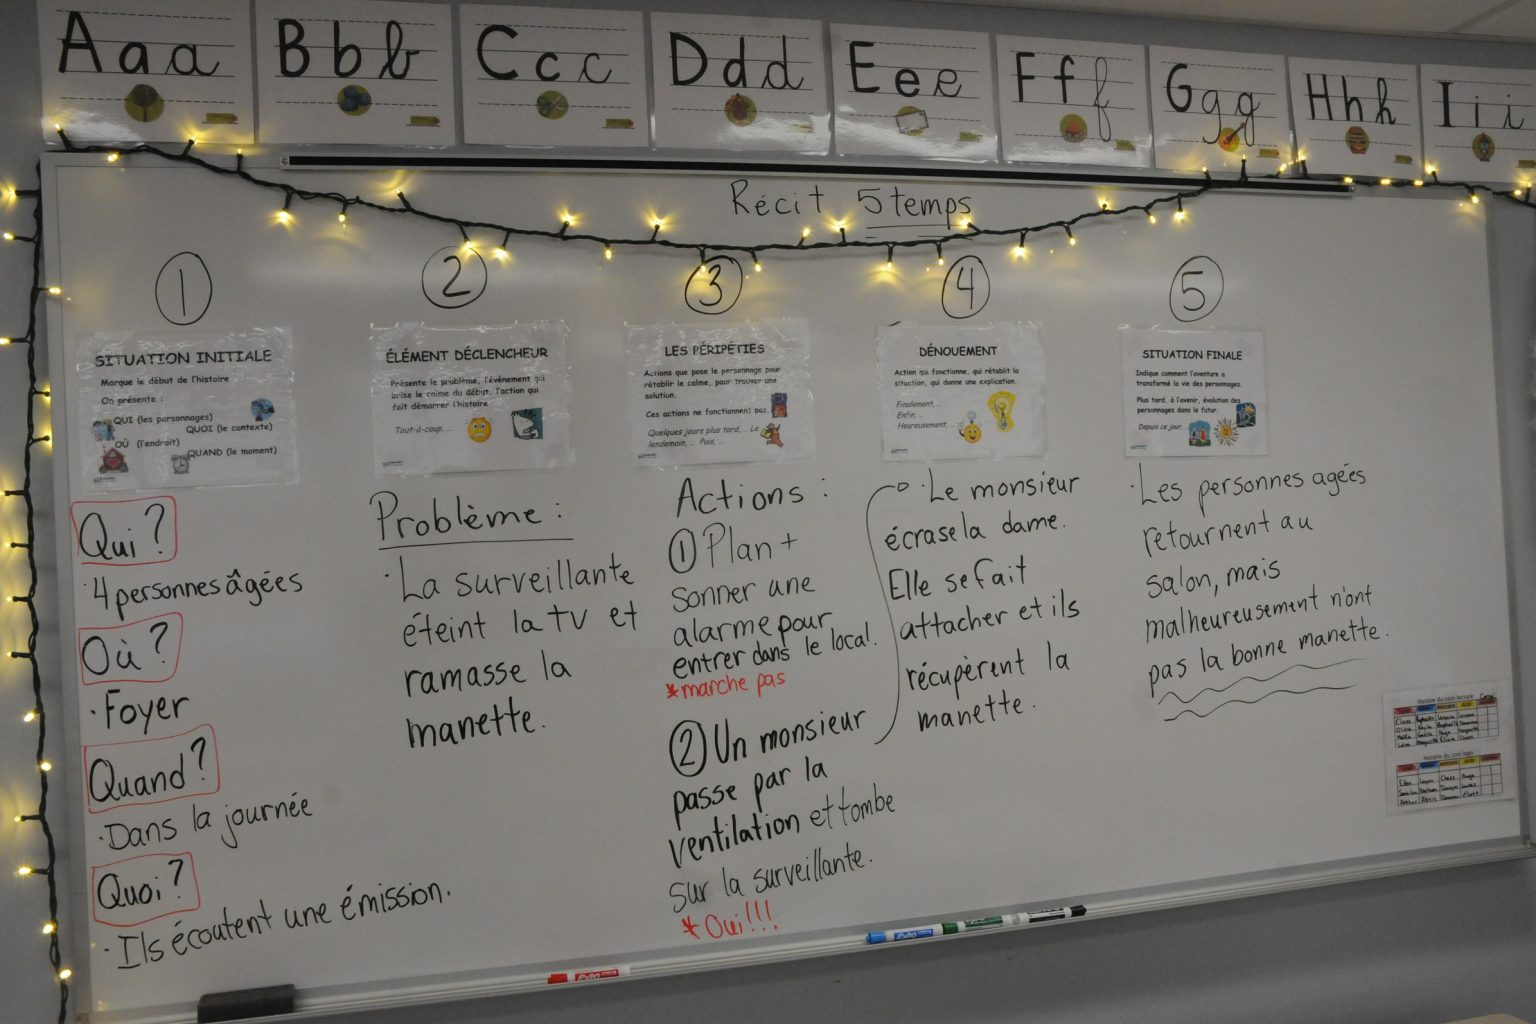 A a a
B b b
C c c
D d d
E e e
F f f
G g g
H h h
I i i
Récit 5 temps
1
SITUATION INITIALE
Marque le début de l'histoire
On présente :
QUI (les personnages)
QUOI (le contexte)
OÙ (l'endroit)
QUAND (le moment)
Qui ?
· 4 personnes âgées
Où ?
· Foyer
Quand ?
· Dans la journée
Quoi ?
· Ils écoutent une émission.
2
ÉLÉMENT DÉCLENCHEUR
Présente le problème, l'événement qui
brise le calme du début, l'action qui
fait démarrer l'histoire
Tout-à-coup, ...
Problème :
· La surveillante
éteint la tv et
ramasse la
manette.
3
LES PÉRIPÉTIES
Actions que pose le personnage pour
rétablir le calme, pour trouver une
solution.
Ces actions ne fonctionnent pas.
Quelques jours plus tard, ... Le
lendemain, ... Puis, ...
Actions :
1 Plan +
sonner une
alarme pour
entrer dans le local.
*marche pas
2 Un monsieur
passe par la
ventilation et tombe
sur la surveillante.
* Oui!!!
4
DÉNOUEMENT
Action qui fonctionne, qui rétablit la
situation, qui donne une explication.
Finalement, ...
Enfin, ...
Heureusement, ...
· Le monsieur
écrase la dame.
Elle se fait
attacher et ils
récupèrent la
manette.
5
SITUATION FINALE
Indique comment l'aventure a
transformé la vie des personnages.
Plus tard, à l'avenir, évolution des
personnages dans le futur.
Depuis ce jour, ...
· Les personnes agées
retournent au
salon, mais
malheureusement n'ont
pas la bonne manette.
Horaire du coin lecture
Horaire du coin lego
EXPO
EXPO